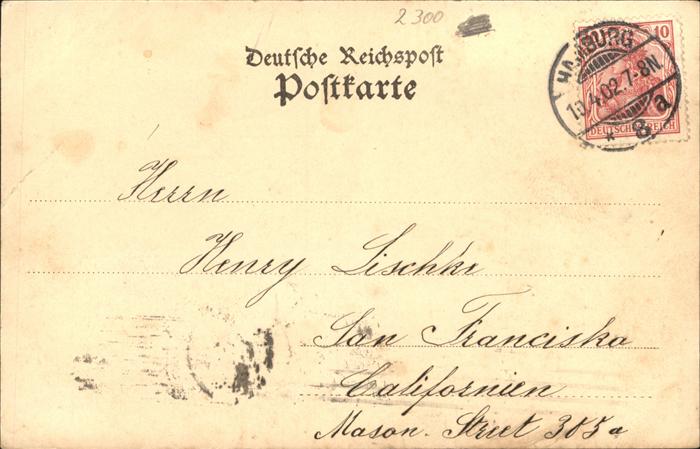 2300
Deutsche Reichspost
Postkarte
10
HAMBURG
4.02.7-8N.
* 8a
DEUTSCHES REICH
Herrn
Henry Lischke
San Franciska
Californien
Mason. Street 305a